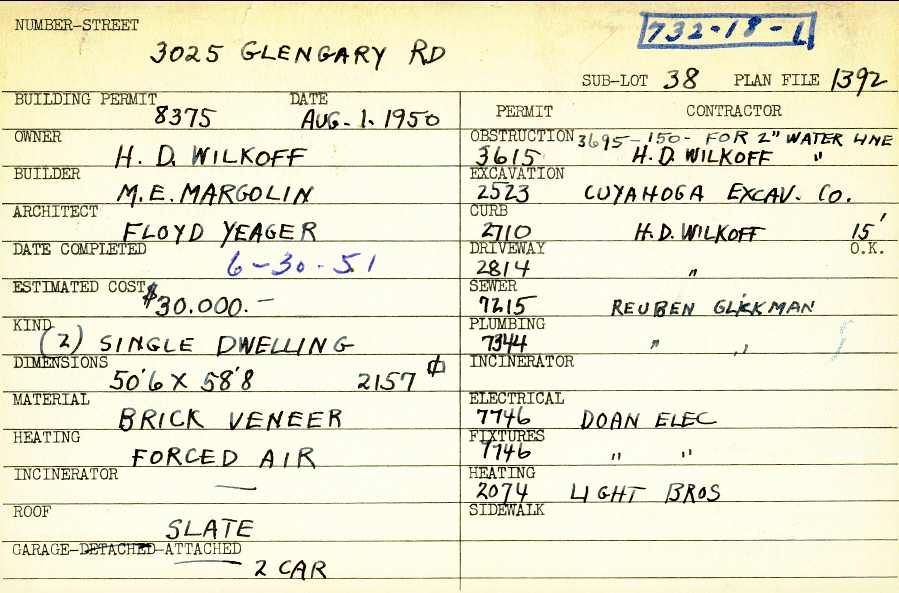 NUMBER-STREET
732-18-1
3025 GLENGARY RD
SUB-LOT 38 PLAN FILE 1392
BUILDING PERMIT 8375 DATE AUG. 1. 1950
OWNER H. D. WILKOFF
BUILDER M. E. MARGOLIN
ARCHITECT FLOYD YEAGER
DATE COMPLETED 6-30-51
ESTIMATED COST $30.000.-
KIND (2) SINGLE DWELLING
DIMENSIONS 50'6 X 58'8 2157 ¢
MATERIAL BRICK VENEER
HEATING FORCED AIR
INCINERATOR —
ROOF SLATE
GARAGE-DETACHED-ATTACHED 2 CAR
PERMIT CONTRACTOR
OBSTRUCTION 3695-150- FOR 2" WATER LINE
3615 H. D. WILKOFF "
EXCAVATION
2523 CUYAHOGA EXCAV. CO.
CURB
2710 H. D. WILKOFF 15'
DRIVEWAY O.K.
2814 "
SEWER
7215 REUBEN GLICKMAN
PLUMBING
7344 " "
INCINERATOR
ELECTRICAL
7746 DOAN ELEC
FIXTURES
7746 " "
HEATING
2074 LIGHT BROS
SIDEWALK